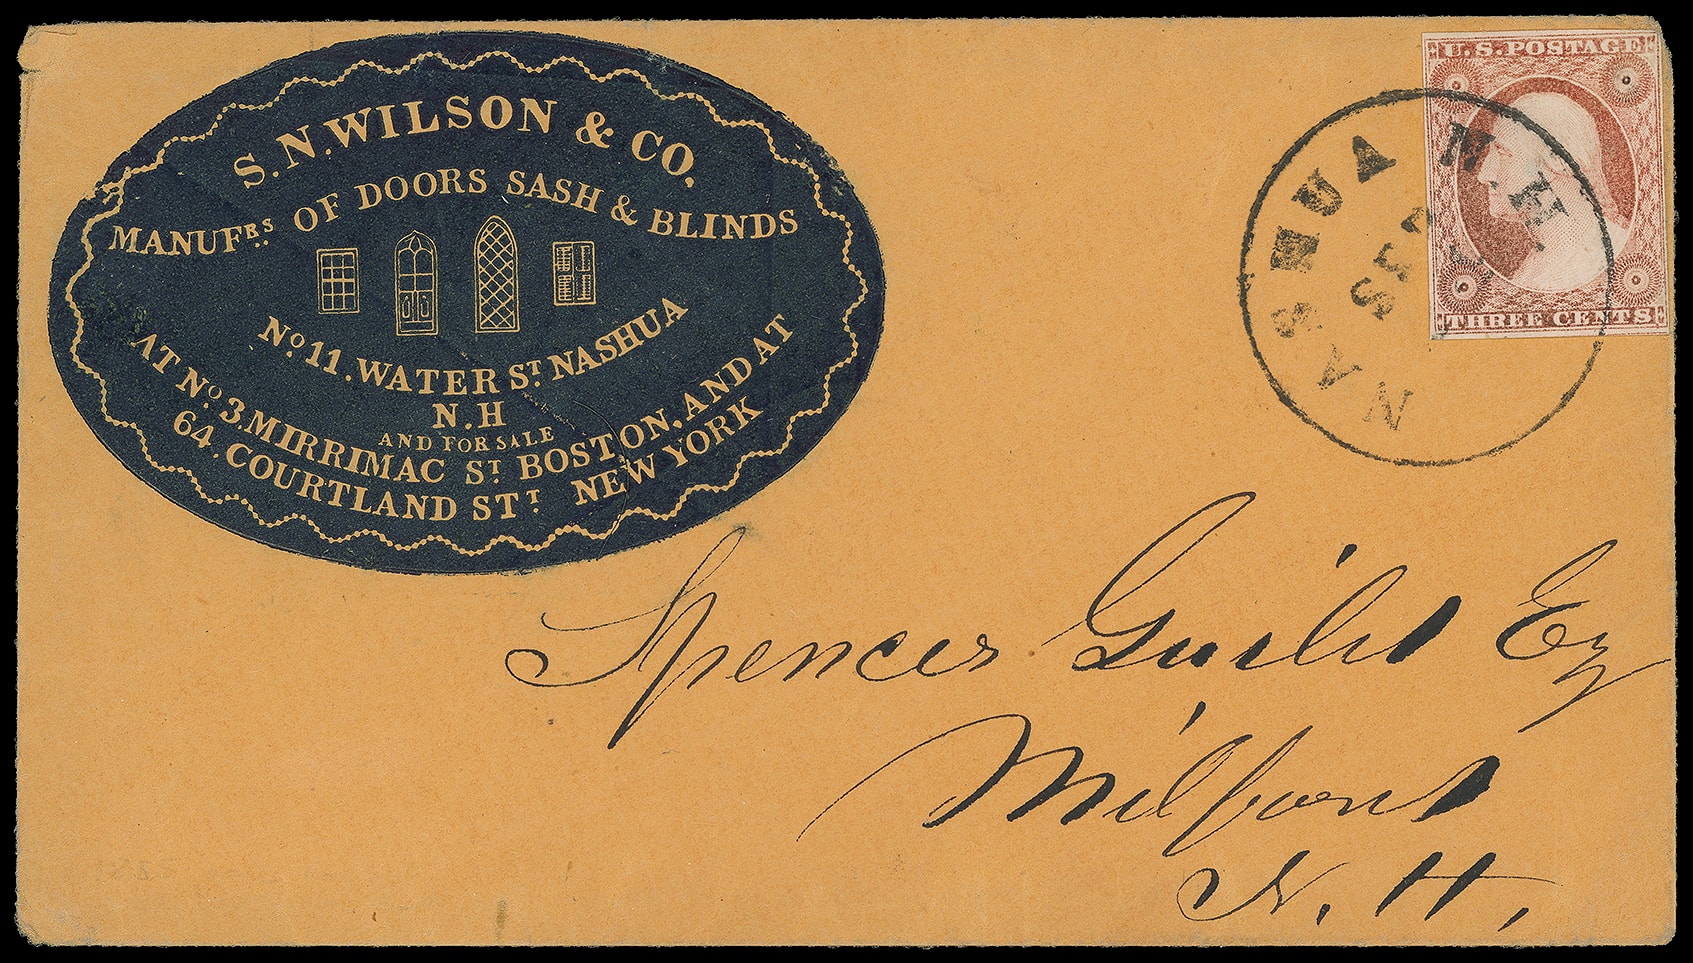 S. N. WILSON & CO,
MANUFRS. OF DOORS SASH & BLINDS
No. 11. WATER ST. NASHUA
N.H
AND FOR SALE
AT No. 3. MIRRIMAC ST. BOSTON. AND AT
64. COURTLAND STT. NEW YORK
U.S. POSTAGE
THREE CENTS
NASHUA N.H.
Spencer Guild Esq
Milford
N. H.